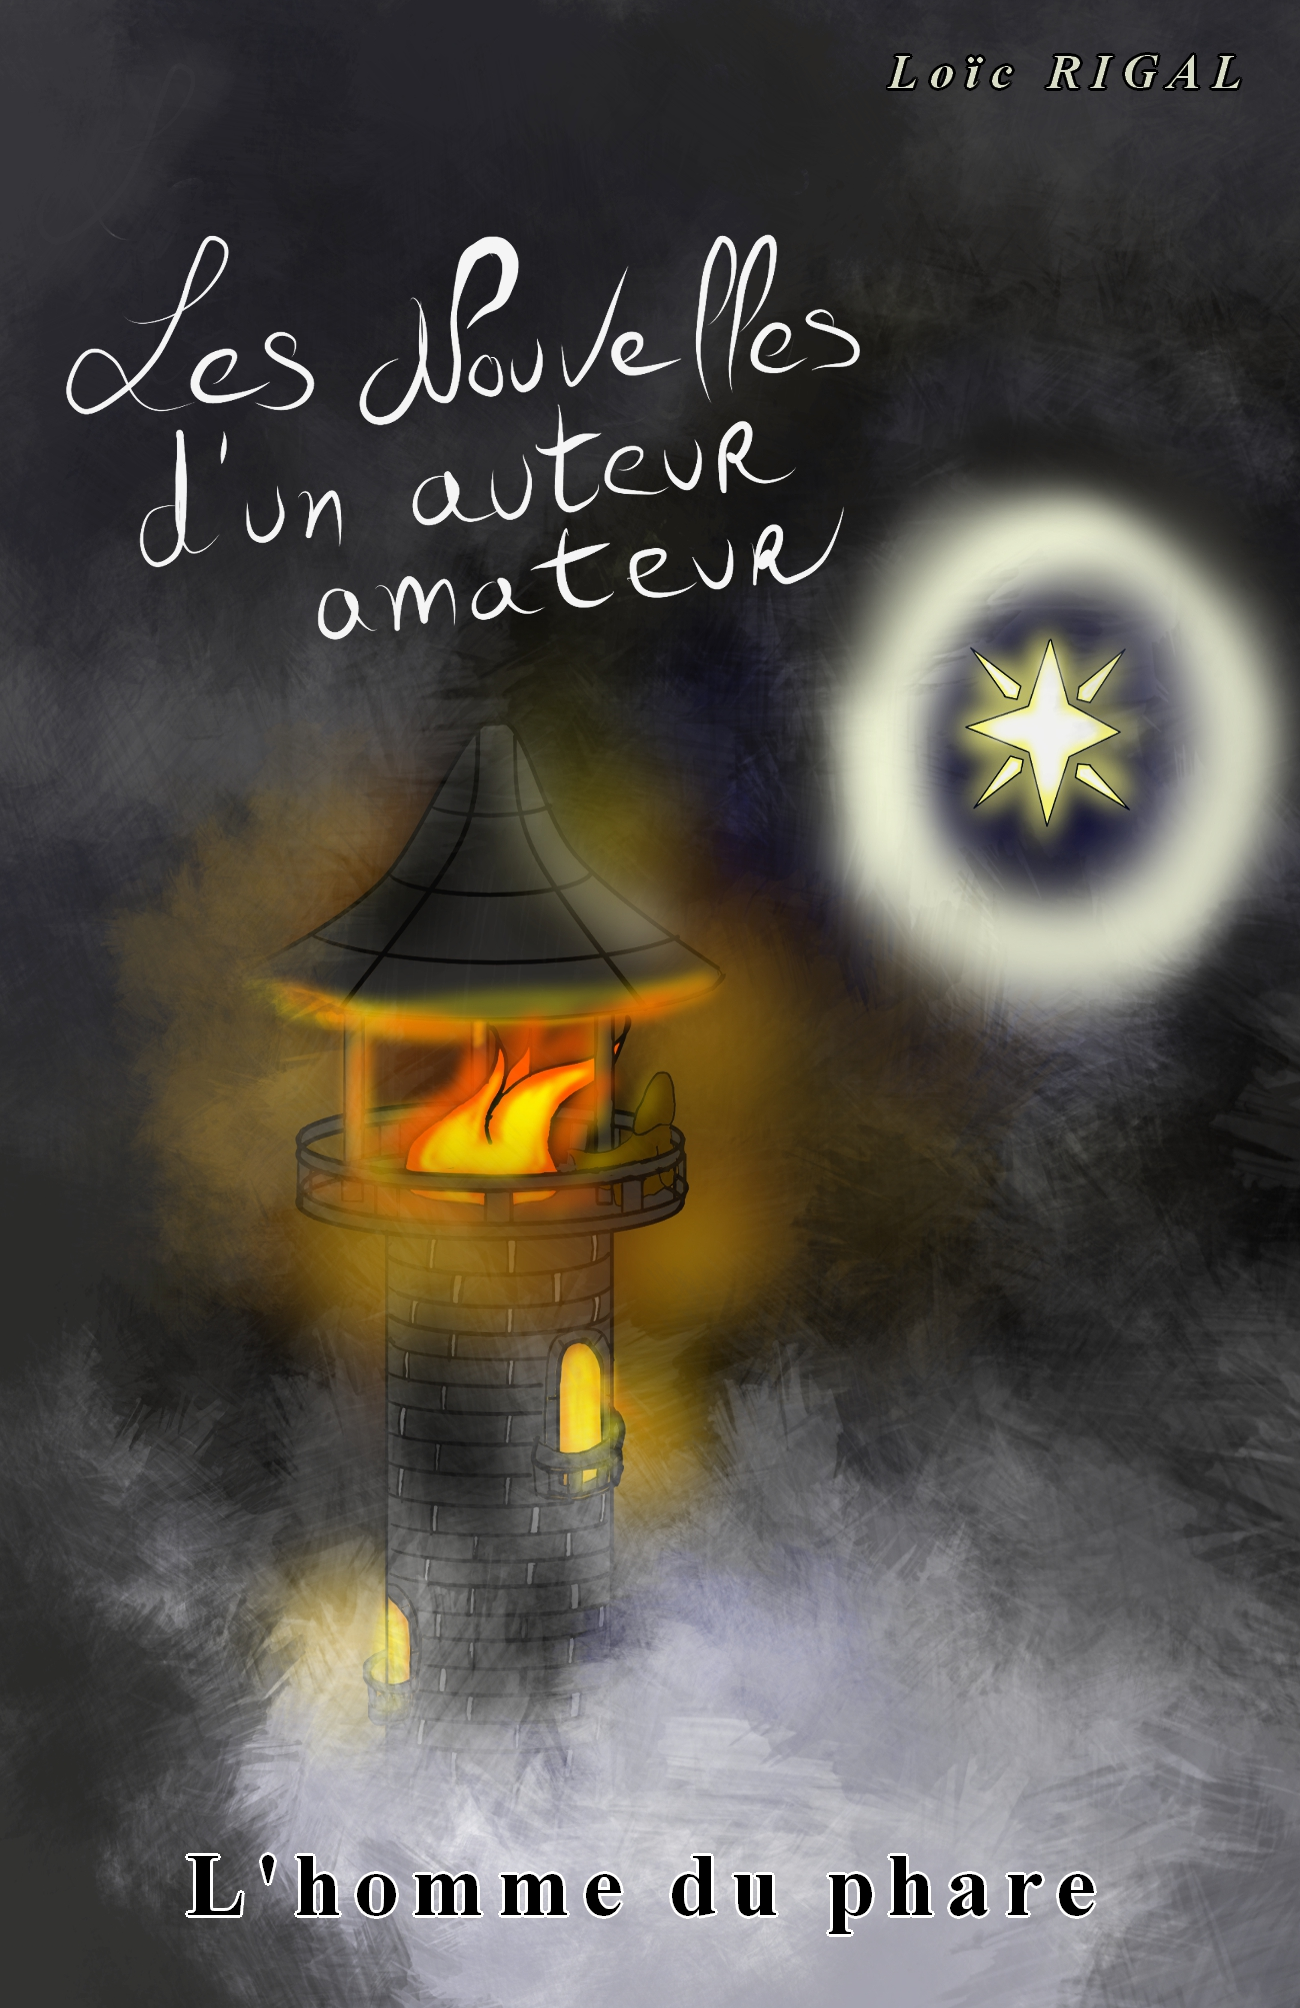 Loïc RIGAL
Les Nouvelles
d'un auteur
amateur
L'homme du phare